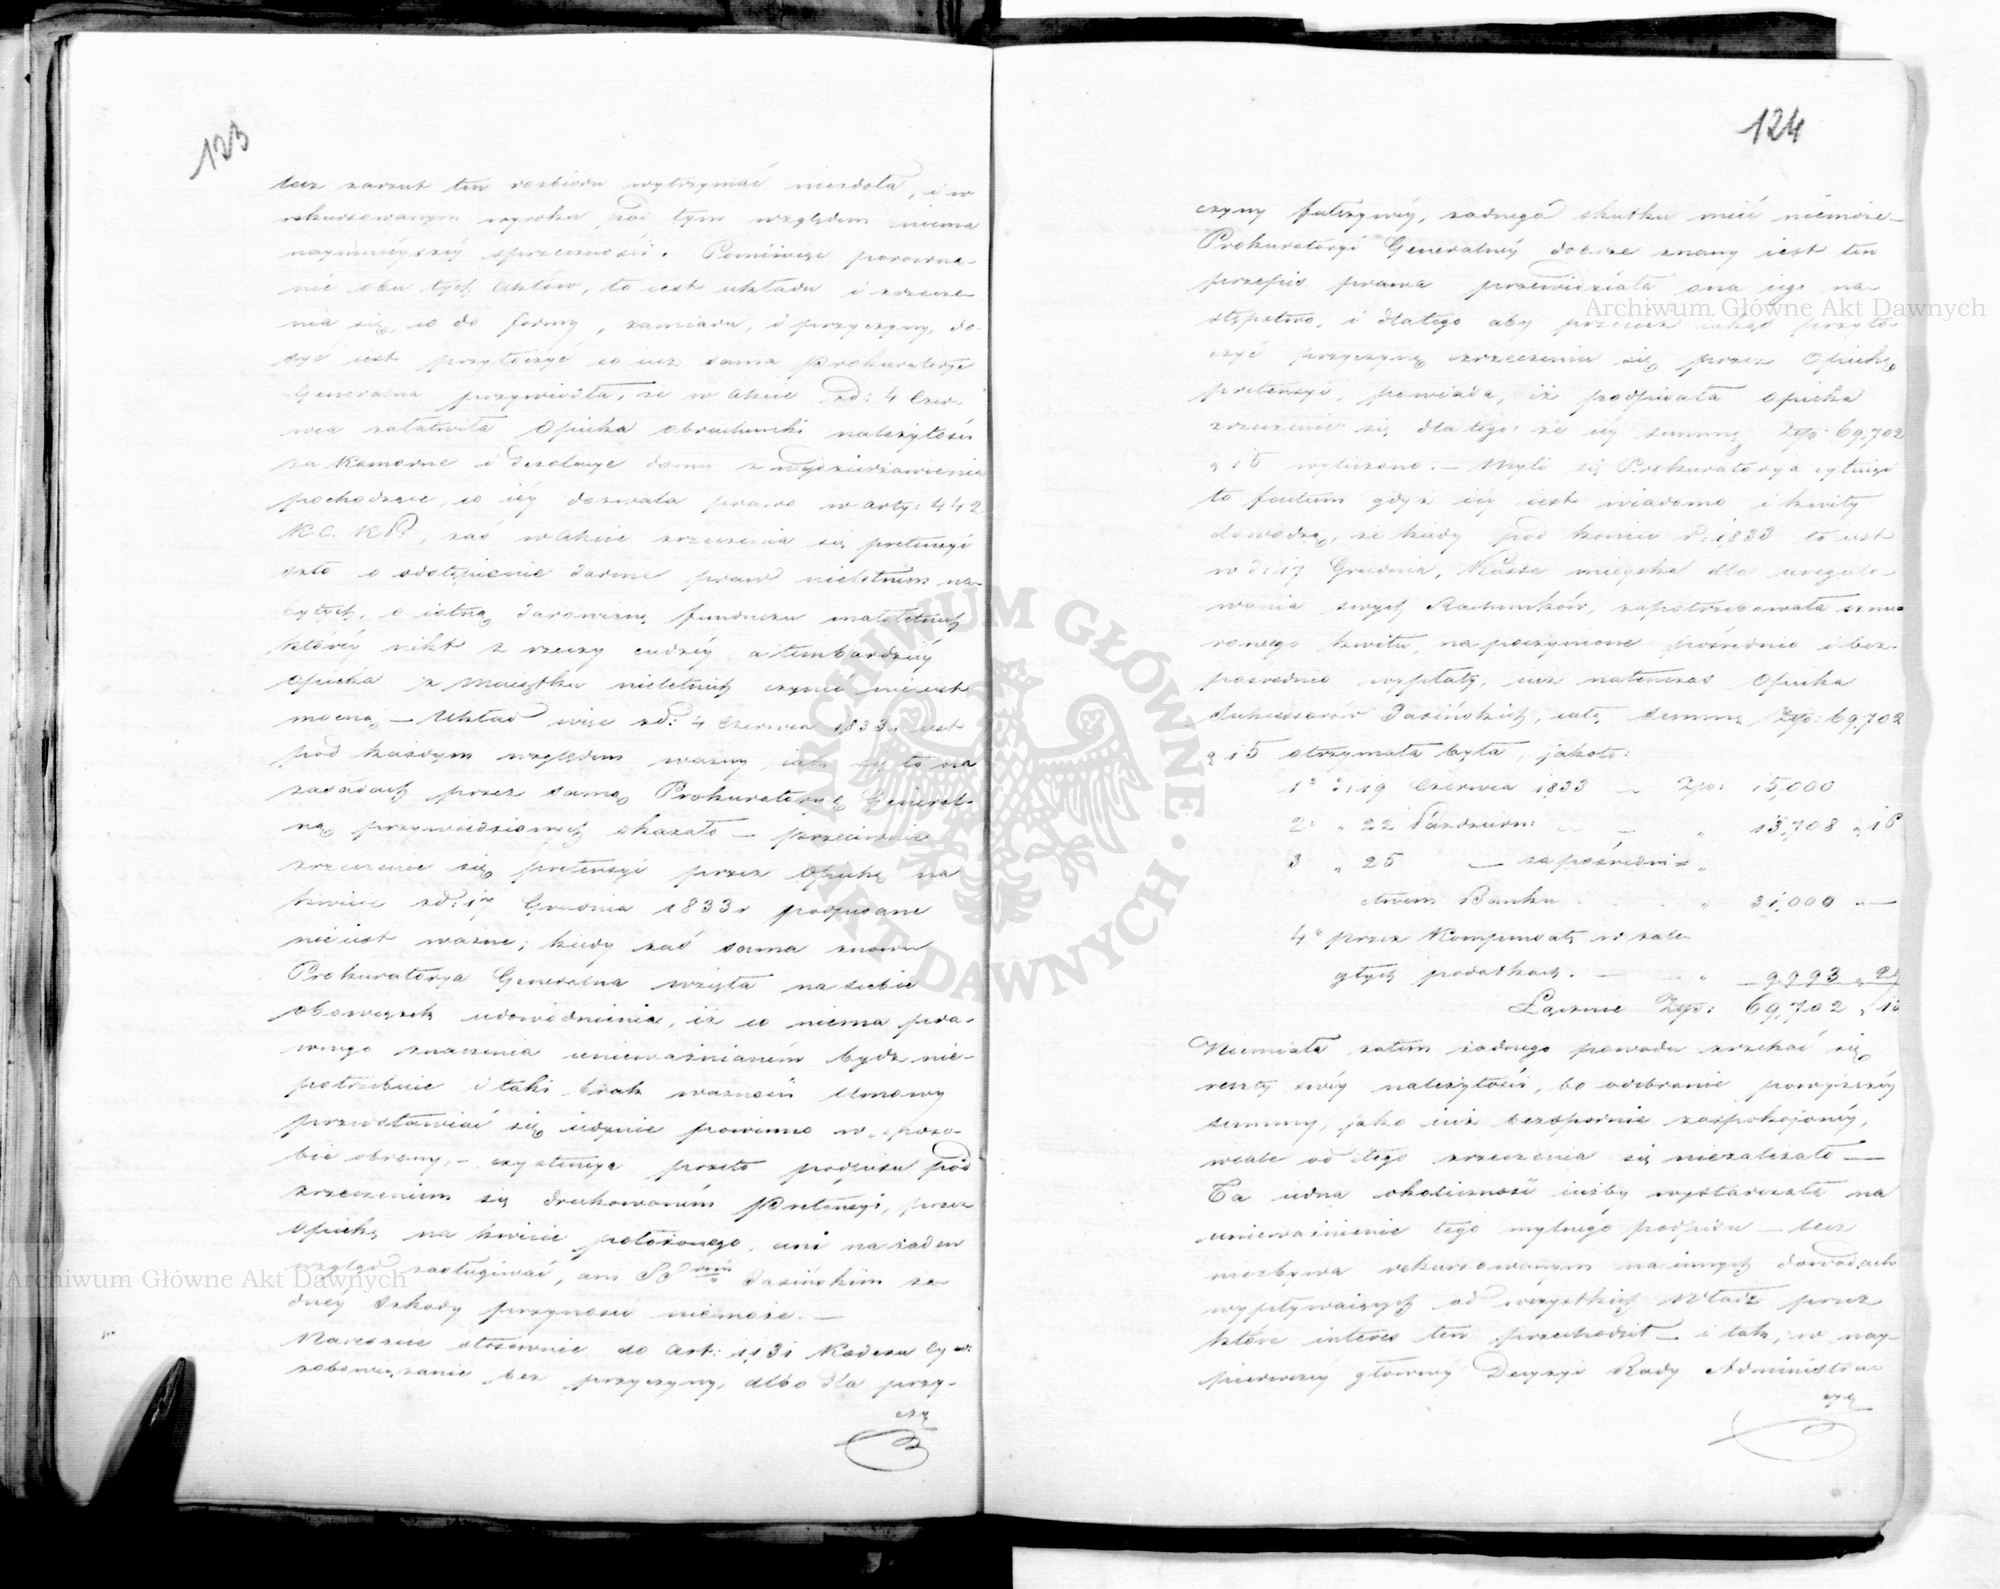 123
lecz zarzut ten rozbioru wytrzymać niezdoła, i w
rekursowanym wyroku pod tym względem niema
naymnieyszéy sprzeczności. Pominąwszy porówna-
nie obu tych Aktów, to iest układu i zrzecze
nia się, co do formy, zamiaru, i przyczyny, do-
syć iest przytoczyć co iuż sama Prokuratorya
Generalna przywiodła, że w Akcie zd: 4 Czer-
wca załatwiła Opieka obrachunki należytości
za Komorne i dezolacye domu z wydzierżawienia
pochodzące, co iéy dozwala prawo w arty: 442
K. C. K P., zaś w Akcie zrzeczenia się pretensyi
szło o odstąpienie darmo praw nieletnim na-
bytych, o istną darowiznę funduszu małoletnich
któréy nikt z rzeczy cudzéy a tembardziéy
Opieka z maiątku nieletnich czynić nie iest
mocną — Układ więc zd: 4 Czerwca 1833 r. iest
pod każdym względem ważny, iak się to na
zasadach przez samą Prokuratoryę General-
ną przywiedzionych okazało — przeciwnie
zrzeczenie się pretensyi przez Opiekę na
kwicie zd: 17 Grudnia 1833 r podpisane
nie iest ważne; kiedy zaś sama znowu
Prokuratorya Generalna wzięła na siebie
obowiązek udowodnienia, iż co niema pra-
wnego znaczenia unieważnianém bydź nie-
potrzebuie i taki brak ważności Umowy
przedstawiać się iedynie powinno w sposo-
bie obrony, — czystemu przeto podpisu pod
zrzeczeniem się drukowaném Pretensyi, przez
Opiekę na kwicie położonego, ani na żaden
wzgląd zasługiwać, ani SSrom Jasińskim ża-
dnéy szkody przynosić niemoże. —
Nareszcie stosownie do Art: 1131 Kodexu Cyw:
zobowiązanie bez przyczyny, albo dla przy-
czy
124
czyny fałszywéy, żadnego skutku mieć niemoże —
Prokuratoryi Generalnéy dobrze znany iest ten
przepis prawa przewidziała ona iego na-
stępstwo, i dlatego aby przecież iakąś przyto-
czyć przyczynę zrzeczenia się przez Opiekę
pretensyi, powiada, iż podpisała Opieka
zrzeczenie się dla tego: że iéy summę Złp: 69,702
g 15 wyliczono. — Myli się Prokuratorya cytuiąc
to factum gdyż iéy iest wiadomo i kwity
dowodzą, że kiedy pod koniec r: 1833 to iest
w d: 17 Grudnia, Kassa mieyska dla uregulo-
wania swych Rachunków, zapotrzebowała sznu-
rowego kwitu, na poczynione pośrednio i bez-
pośrednio wypłaty, iuż natenczas Opieka
Sukcessorów Jasińskich, całą summę Złp: 69,702
g 15 otrzymała była, jakoto:
1° d: 19 Czerwca 1833 — Złp: 15,000
2° „ 22 Październ: — — „ 13,708 „ 16
3 „ 25 — za pośredni-
ctwem Banku . . . „ 31,000 —
4° przez Kompensatę w zale-
głych podatkach. — — „ 9,993 „
Łącznie Złp: 69,702 „ 15
Niemiała zatem żadnego powodu zrzekać się
reszty swéy należytości, bo odebranie powyższéy
summy, jako iuż bezspornie zaspokojonéy,
wcale od tego zrzeczenia się niezależało —
Ta iedna okoliczność iużby wystarczała na
unieważnienie tego mylnego podpisu — lecz
niezbywa rekursowanym na innych dowodach
wypływaiących od wszystkich Władz przez
które interes ten przechodził — i tak, w nay-
pierwszéy głównéy Decyzyi Rady Administra-
cyi
Archiwum Główne Akt Dawnych
Archiwum Główne Akt Dawnych
ARCHIWUM GŁÓWNE · AKT DAWNYCH ·